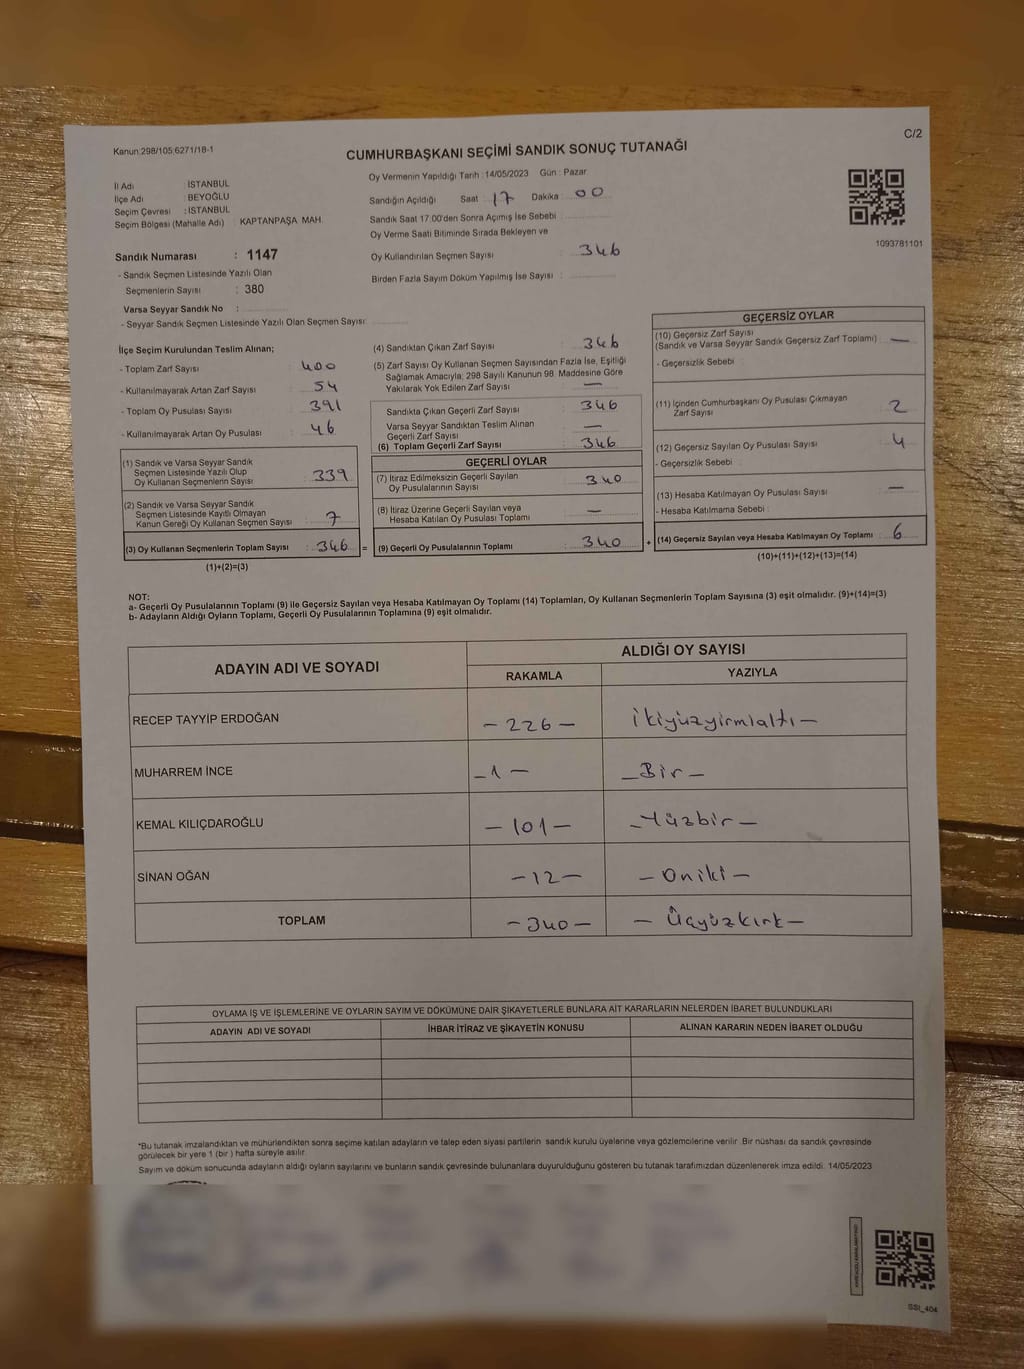 C/2
Kanun:298/105;6271/18-1
CUMHURBAŞKANI SEÇİMİ SANDIK SONUÇ TUTANAĞI
Oy Vermenin Yapıldığı Tarih :14/05/2023 Gün : Pazar
İl Adı İSTANBUL
İlçe Adı BEYOĞLU
Seçim Çevresi : İSTANBUL
Seçim Bölgesi (Mahalle Adı) : KAPTANPAŞA MAH.
Sandığın Açıldığı Saat 17 Dakika 00
Sandık Saat 17:00'den Sonra Açımış İse Sebebi
Oy Verme Saati Bitiminde Sırada Bekleyen ve
Oy Kullandırılan Seçmen Sayısı : 346
Birden Fazla Sayım Döküm Yapılmış İse Sayısı :
1093781101
Sandık Numarası : 1147
- Sandık Seçmen Listesinde Yazılı Olan
Seçmenlerin Sayısı : 380
Varsa Seyyar Sandık No :
- Seyyar Sandık Seçmen Listesinde Yazılı Olan Seçmen Sayısı:
İlçe Seçim Kurulundan Teslim Alınan;
- Toplam Zarf Sayısı : 400
- Kullanılmayarak Artan Zarf Sayısı : 54
- Toplam Oy Pusulası Sayısı : 391
- Kullanılmayarak Artan Oy Pusulası : 46
(1) Sandık ve Varsa Seyyar Sandık
Seçmen Listesinde Yazılı Olup
Oy Kullanan Seçmenlerin Sayısı : 339
(2) Sandık ve Varsa Seyyar Sandık
Seçmen Listesinde Kayıtlı Olmayan
Kanun Gereği Oy Kullanan Seçmen Sayısı : 7
(3) Oy Kullanan Seçmenlerin Toplam Sayısı : 346 =
(1)+(2)=(3)
(4) Sandıktan Çıkan Zarf Sayısı : 346
(5) Zarf Sayısı Oy Kullanan Seçmen Sayısından Fazla İse, Eşitliği
Sağlamak Amacıyla; 298 Sayılı Kanunun 98. Maddesine Göre
Yakılarak Yok Edilen Zarf Sayısı : —
Sandıkta Çıkan Geçerli Zarf Sayısı : 346
Varsa Seyyar Sandıktan Teslim Alınan
Geçerli Zarf Sayısı : —
(6) Toplam Geçerli Zarf Sayısı : 346
GEÇERLİ OYLAR
(7) İtiraz Edilmeksizin Geçerli Sayılan
Oy Pusulalarının Sayısı : 340
(8) İtiraz Üzerine Geçerli Sayılan veya
Hesaba Katılan Oy Pusulası Toplamı : —
(9) Geçerli Oy Pusulalarının Toplamı : 340 +
GEÇERSİZ OYLAR
(10) Geçersiz Zarf Sayısı
(Sandık ve Varsa Seyyar Sandık Geçersiz Zarf Toplamı) : —
- Geçersizlik Sebebi :
(11) İçinden Cumhurbaşkanı Oy Pusulası Çıkmayan
Zarf Sayısı : 2
(12) Geçersiz Sayılan Oy Pusulası Sayısı : 4
- Geçersizlik Sebebi :
(13) Hesaba Katılmayan Oy Pusulası Sayısı : —
- Hesaba Katılmama Sebebi :
(14) Geçersiz Sayılan veya Hesaba Katılmayan Oy Toplamı : 6
(10)+(11)+(12)+(13)=(14)
NOT:
a- Geçerli Oy Pusulalarının Toplamı (9) ile Geçersiz Sayılan veya Hesaba Katılmayan Oy Toplamı (14) Toplamları, Oy Kullanan Seçmenlerin Toplam Sayısına (3) eşit olmalıdır. (9)+(14)=(3)
b- Adayların Aldığı Oyların Toplamı, Geçerli Oy Pusulalarının Toplamına (9) eşit olmalıdır.
ADAYIN ADI VE SOYADI ALDIĞI OY SAYISI
RAKAMLA YAZIYLA
RECEP TAYYİP ERDOĞAN – 226 – ikiyüzyirmialtı –
MUHARREM İNCE – 1 – – Bir –
KEMAL KILIÇDAROĞLU – 101 – – Yüzbir –
SİNAN OĞAN – 12 – – Oniki –
TOPLAM – 340 – – Üçyüzkırk –
OYLAMA İŞ VE İŞLEMLERİNE VE OYLARIN SAYIM VE DÖKÜMÜNE DAİR ŞİKAYETLERLE BUNLARA AİT KARARLARIN NELERDEN İBARET BULUNDUKLARI
ADAYIN ADI VE SOYADI İHBAR İTİRAZ VE ŞİKAYETİN KONUSU ALINAN KARARIN NEDEN İBARET OLDUĞU
*Bu tutanak imzalandıktan ve mühürlendikten sonra seçime katılan adayların ve talep eden siyasi partilerin sandık kurulu üyelerine veya gözlemcilerine verilir. Bir nüshası da sandık çevresinde
görülecek bir yere 1 (bir) hafta süreyle asılır.
Sayım ve döküm sonucunda adayların aldığı oyların sayılarını ve bunların sandık çevresinde bulunanlara duyurulduğunu gösteren bu tutanak tarafımızdan düzenlenerek imza edildi. 14/05/2023
SSI_404